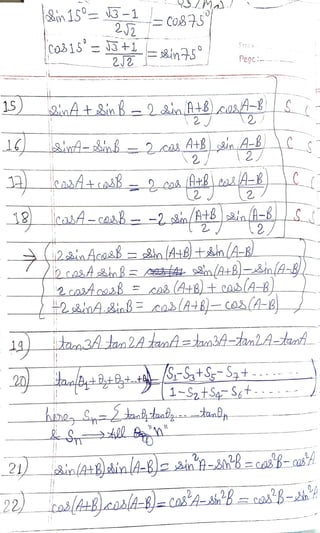 sin 15° = √3 - 1 / 2√2 = cos 75°
cos 15° = √3 + 1 / 2√2 = sin 75°
Page:
15) sinA + sinB = 2 sin (A+B / 2) cos (A-B / 2) S C
16) sinA - sinB = 2 cos (A+B / 2) sin (A-B / 2) C S
17) cosA + cosB = 2 cos (A+B / 2) cos (A-B / 2) C C
18) cosA - cosB = -2 sin (A+B / 2) sin (A-B / 2) S S
→ 2 sinA cosB = sin (A+B) + sin (A-B)
2 cosA sinB = sin (A+B) - sin (A-B)
2 cosA cosB = cos (A+B) + cos (A-B)
-2 sinA sinB = cos (A+B) - cos (A-B)
19) tan 3A tan 2A tanA = tan 3A - tan 2A - tanA
20) tan (θ1 + θ2 + θ3 + ... + θn) = (S1 - S3 + S5 - S7 + ....... / 1 - S2 + S4 - S6 + .......)
here, Sn = Σ tanθ1 tanθ2 ..... tanθn
& Sn → till "n"
21) sin (A+B) sin (A-B) = sin²A - sin²B = cos²B - cos²A
22) cos (A+B) cos (A-B) = cos²A - sin²B = cos²B - sin²A